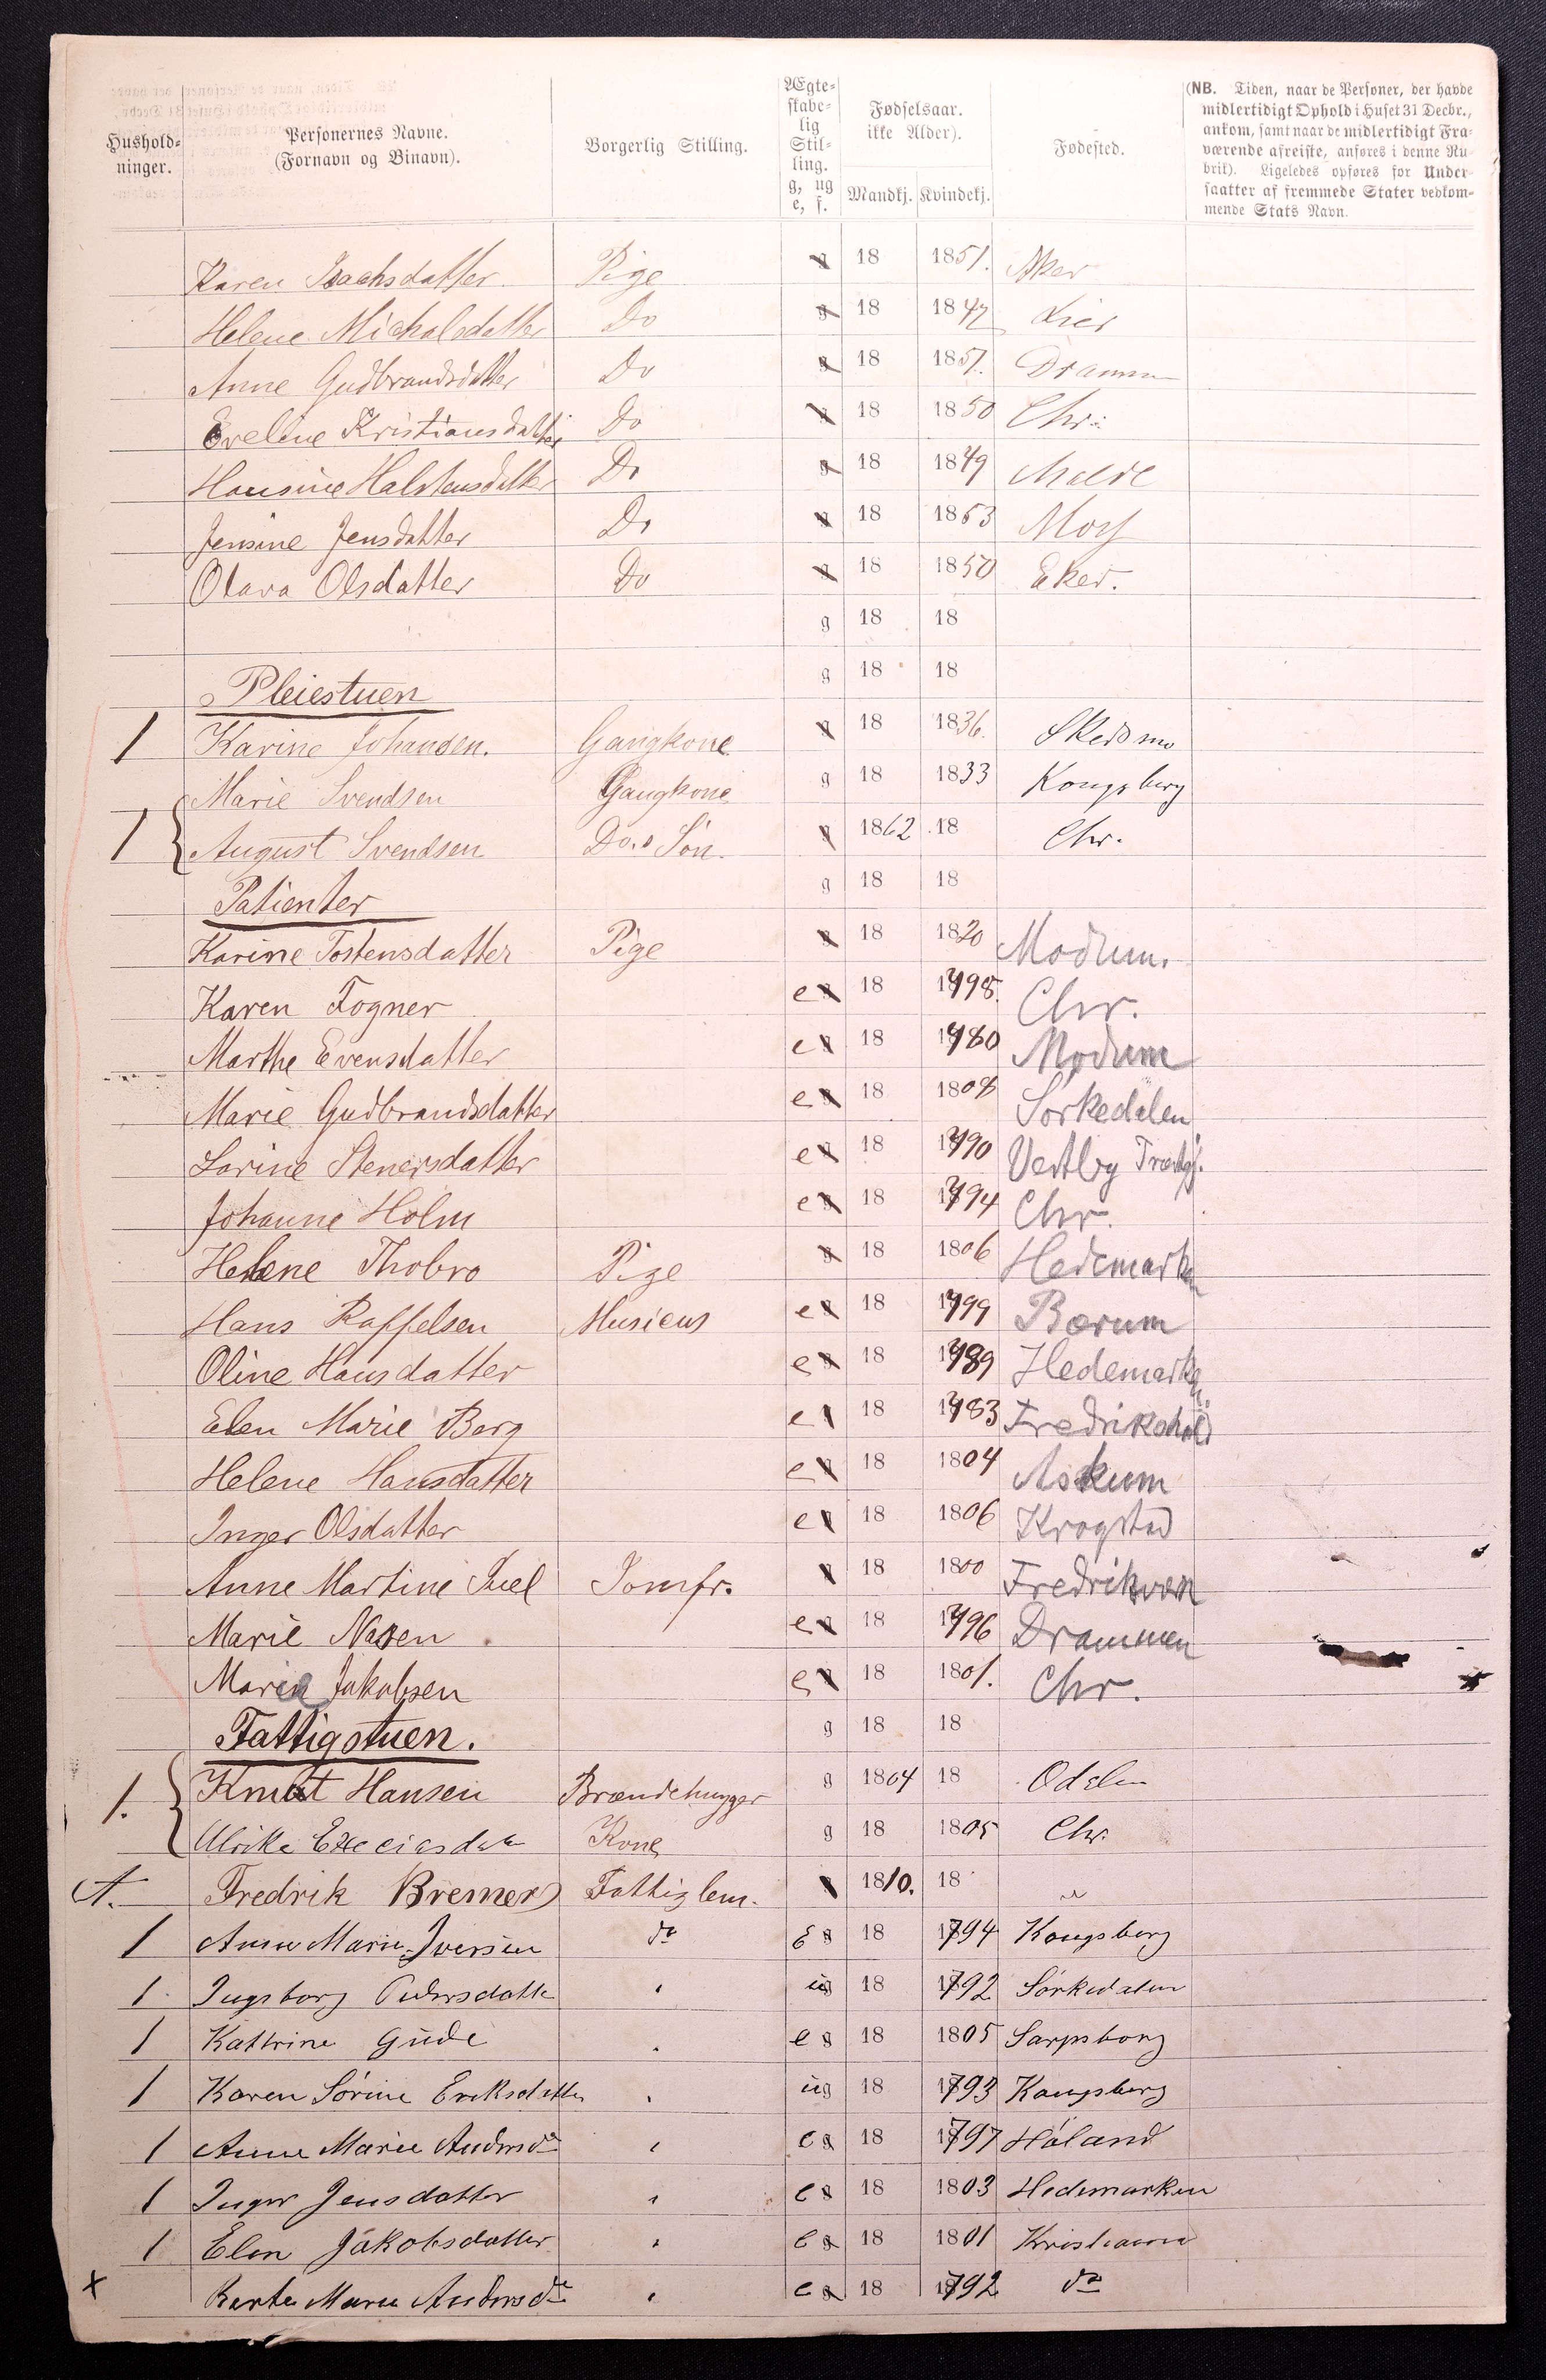 Hushold-
ninger.
Personernes Navne.
(Fornavn og Binavn).
Borgerlig Stilling.
Ægte-
skabe-
lig
Stil-
ling.
g, ug
e, f.
Fødselsaar.
ikke Alder).
Mandkj. Kvindekj.
Fødested.
(NB. Tiden, naar de Personer, der havde
midlertidigt Ophold i Huset 31 Decbr.,
ankom, samt naar de midlertidigt Fra-
værende afreiste, anføres i denne Ru-
brik). Ligeledes opføres for Under-
saatter af fremmede Stater vedkom-
mende Stats Navn.
Karen Isachsdatter Pige g 18 1851. Aker
Helene Michalsdatter Do g 18 1847 Lier
Anne Gudbrandsdatter Do g 18 1851. Drammn
Eveline Kristiansdatter Do g 18 1850 Chr:
Hansine Halstensdatter Do g 18 1849 Molde
Jensine Jensdatter Do g 18 1853 Moss
Olava Olsdatter Do g 18 1850 Eker.
g 18 18
Pleiestuen g 18 18
1 Karine Johansen. Gangkone g 18 1836. Skedsmo
Marie Svendsen Gangkone g 18 1833 Kongsberg
1 August Svendsen Do.s Søn. g 1862 18 Chr.
Patienter g 18 18
Karine Tostensdatter Pige g 18 1820 Modum.
Karen Fogner e g 18 1798. Chr.
Marthe Evensdatter e g 18 1780 Modum
Marie Gudbrandsdatter e g 18 1808 Sørkedalen
Sorine Stenersdatter e g 18 1790 Vestby Præstgj.
Johanne Holm e g 18 1794 Chr.
Helene Thobro Pige g 18 1806 Hedemarken
Hans Raffelsen Musicus e g 18 1799 Bærum
Oline Hansdatter e g 18 1789 Hedemarken
Elen Marie Berg e g 18 1783 Fredrikshald
Helene Hansdatter e g 18 1804 Askum
Inger Olsdatter e g 18 1806 Krogstad
Anne Martine Juel Jomfr. g 18 1800 Fredriksværn
Marie Nasen e g 18 1796 Drammen
Maria Jakobsen e g 18 1801. Chr.
Fattigstuen. g 18 18
1. Knut Hansen Brændehugger g 1804 18 Odalen
Ulrike Ezeciasdatr Kone g 18 1805 Chr.
Fredrik Bremer Fattiglem. g 1810. 18 "
1 Anne Marie Iversen do E g 18 1794 Kongsberg
1 Ingeborg Pedersdatte " ug 18 1792 Sørkedalen
1 Kathrine Gude " e g 18 1805 Sarpsborg
1 Karen Sørine Eriksdatter " ug 18 1793 Kongsberg
1 Anne Marie Andersdr " e g 18 1797 Høland
1 Inger Jensdatter " e g 18 1803 Hedemarken
1 Elen Jakobsdatter " e g 18 1801 Kristiania
x Berte Marie Andersdr " e g 18 1792 do